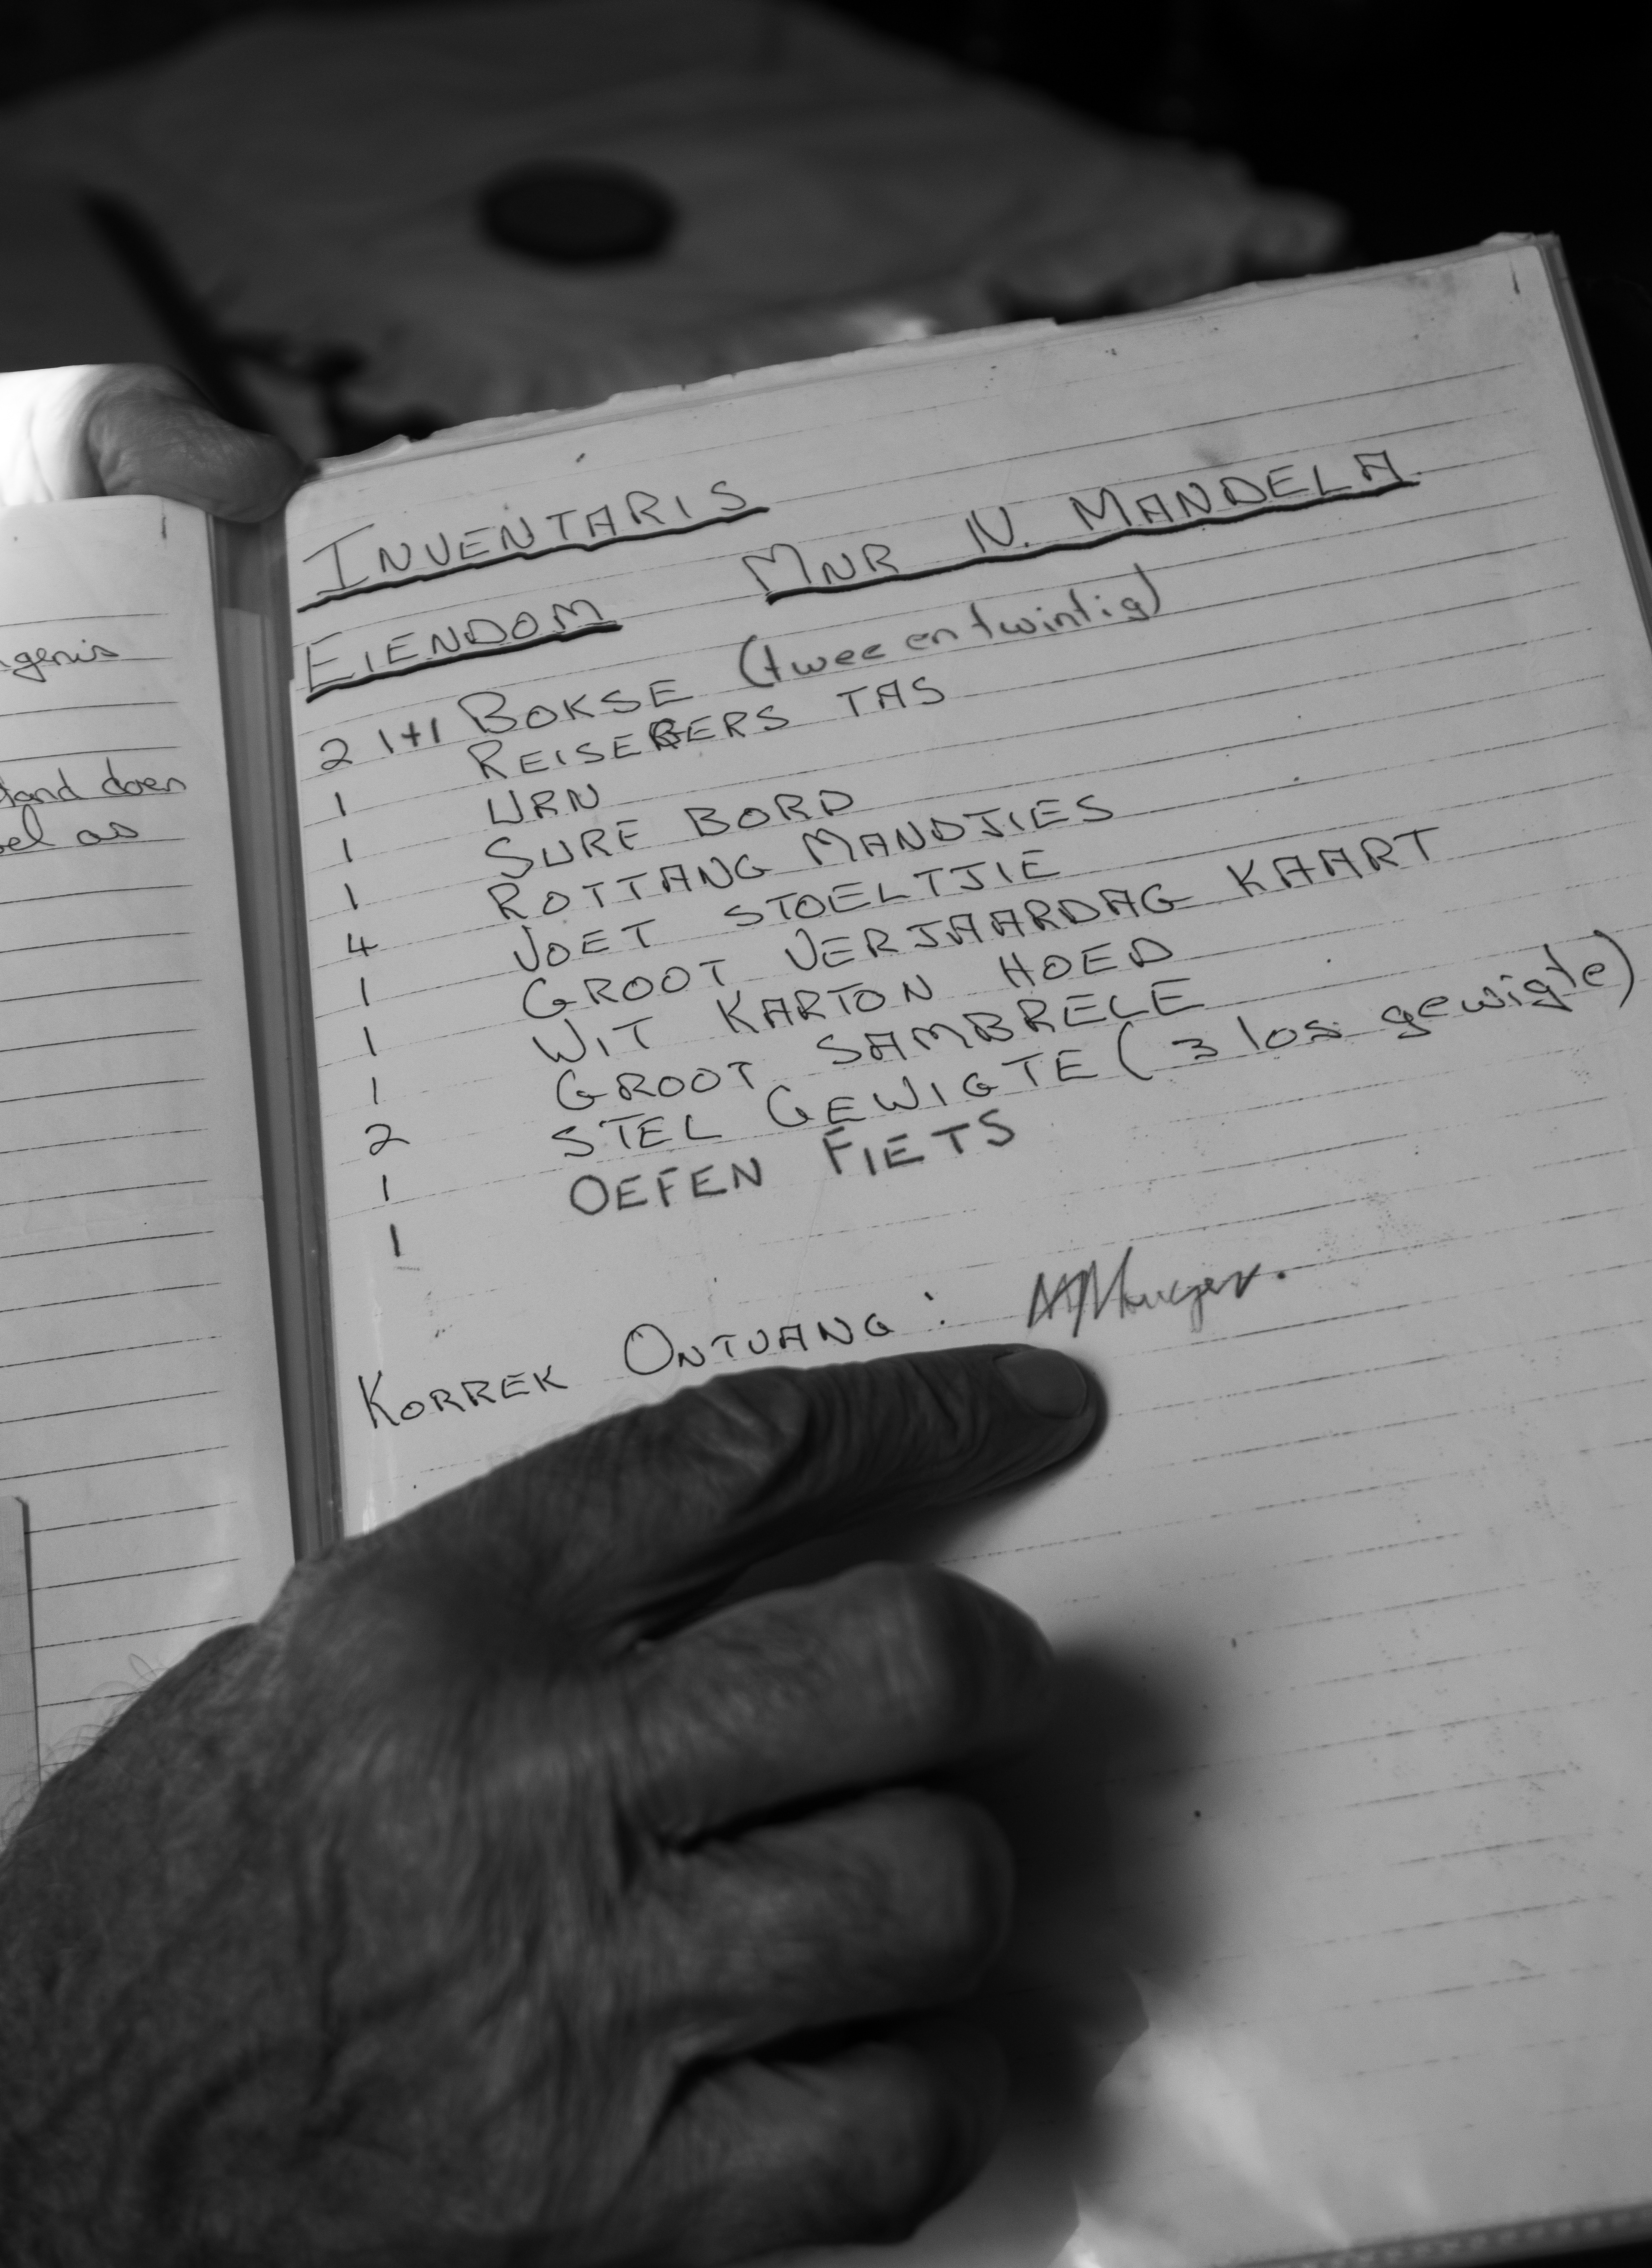 genis
tand doen
sel as
INVENTARIS
EIENDOM MNR N. MANDELA
2 1+1 BOKSE (twee en twintig)
1 TAS
1 URN
1 SURF BORD
4 ROTTANG MANDJIES
1 VOET STOELTJIE
1 GROOT VERJAARDAG KAART
1 WIT KARTON HOED
2 GROOT SAMBRELE
1 STEL GEWIGTE (3 los gewigte)
1 OEFEN FIETS
KORREK ONTVANG: